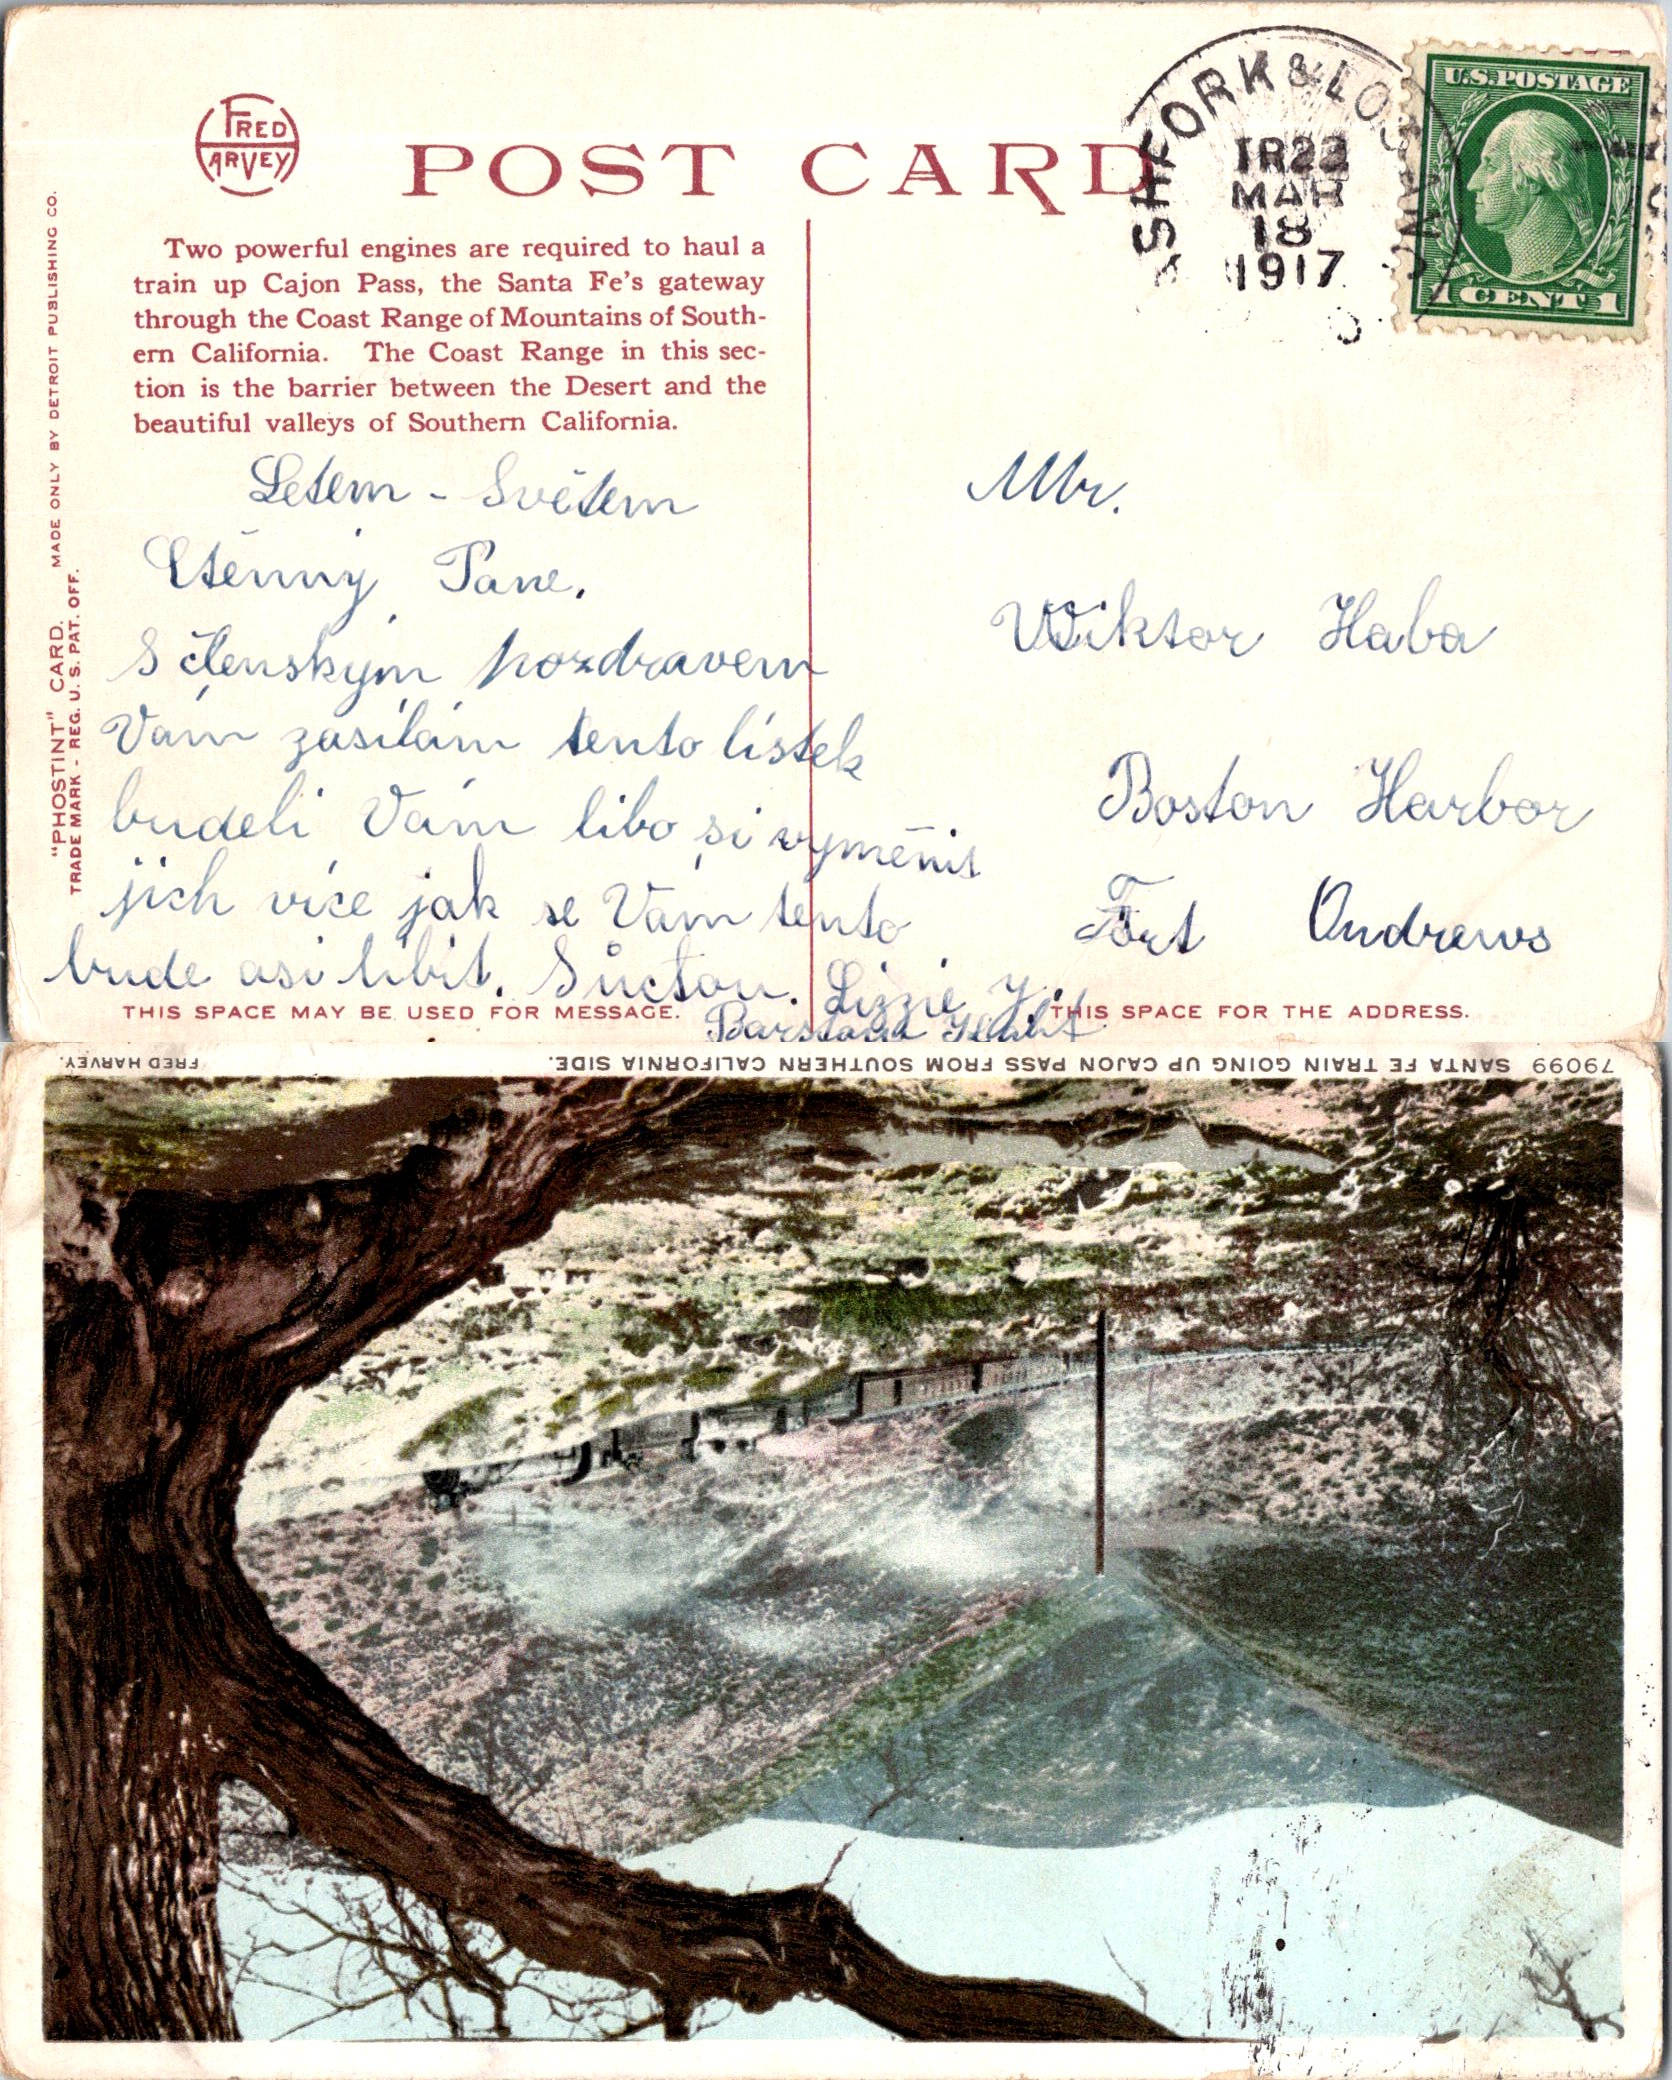 FRED
HARVEY
POST CARD
ASHFORK & LOS ANG
TR 22
MAR
18
1917
U.S. POSTAGE
1 CENT 1
"PHOSTINT" CARD. MADE ONLY BY DETROIT PUBLISHING CO.
TRADE MARK - REG. U. S. PAT. OFF.
Two powerful engines are required to haul a
train up Cajon Pass, the Santa Fe's gateway
through the Coast Range of Mountains of South-
ern California. The Coast Range in this sec-
tion is the barrier between the Desert and the
beautiful valleys of Southern California.
Letem - Světem
Ctěnný Pane.
S členským pozdravem
Vám zasílám tento lístek
budeli Vám libo si vyměnit
jich více jak se Vám tento
bude asi libit. S úctou. Lizzie
Barstow Calif
Mr.
Wiktor Haba
Boston Harbor
Fort Andrews
THIS SPACE MAY BE USED FOR MESSAGE.
THIS SPACE FOR THE ADDRESS.
79099 SANTA FE TRAIN GOING UP CAJON PASS FROM SOUTHERN CALIFORNIA SIDE.
FRED HARVEY.